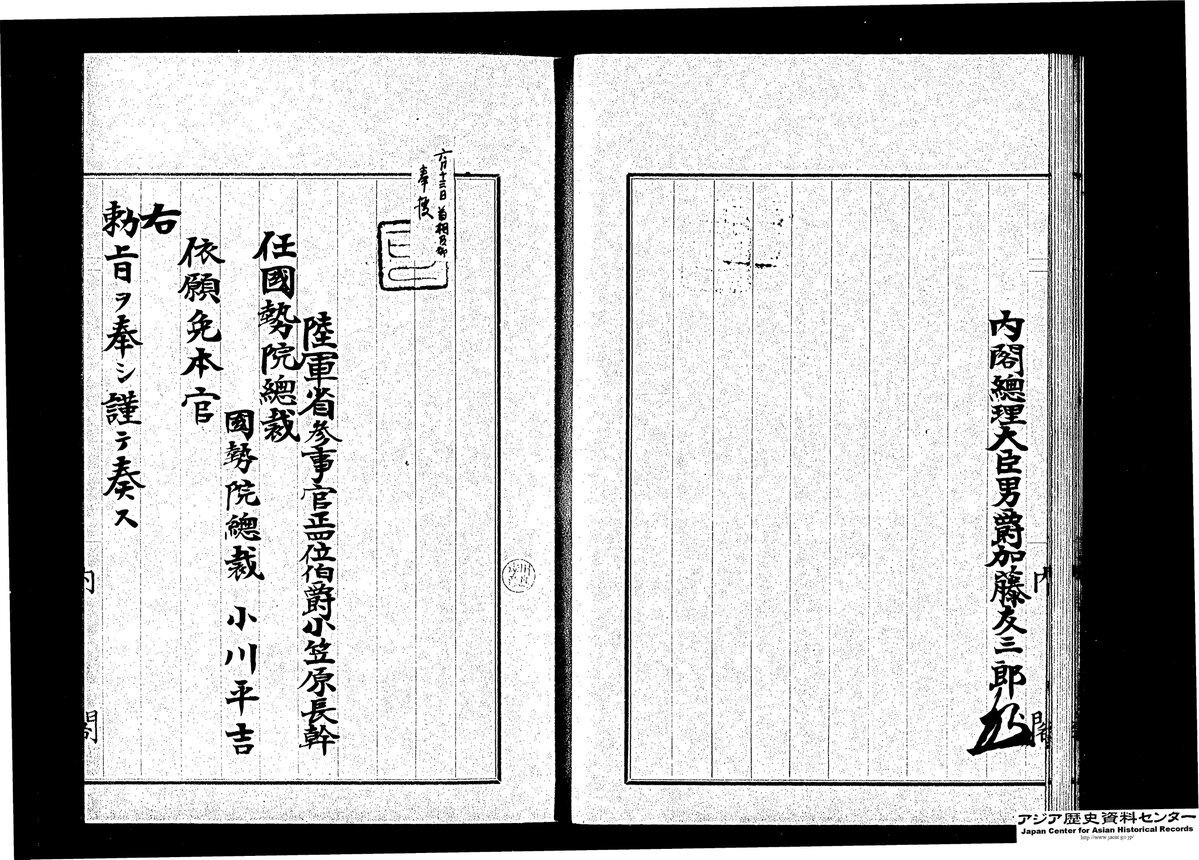 内閣總理大臣男爵加藤友三郎
内閣
六月十三日首相
奉
可
陸軍省参事官正四位伯爵小笠原長幹
任國勢院總裁
國勢院總裁 小川平吉
依願免本官
右
勅旨ヲ奉シ謹テ奏ス
内閣
アジア歴史資料センター
Japan Center for Asian Historical Records
http://www.jacar.go.jp/